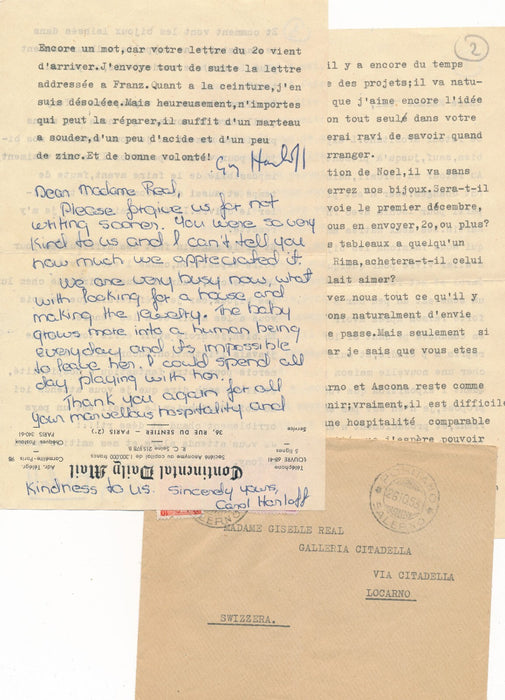 Encore un mot,car votre lettre du 2o vient
d'arriver.J'envoye tout de suite la lettre
addressée a Franz.Quant a la ceinture,j'en
suis désoléee.Mais heureusement,n'importes
qui peut la réparer,il suffit d'un marteau
a souder,d'un peu d'acide et d'un peu
de zinc.Et de bonne volonté!
Dear Madame Real,
Please forgive us for not
writing sooner. You were so very
kind to us and I can't tell you
how much we appreciated it
We are very busy now, what
with looking for a house and
making the jewelry. The baby
grows more into a human being
everyday and its impossible
to leave her. I could spend all
day playing with her.
Thank you again for all
your marvellous hospitality and
Kindness to us. Sincerely yours,
Carol Harloff
Continental Daily Mail
Société Anonyme au capital de francs
36, RUE DU SENTIER - PARIS (2e)
Téléphone
LOUVRE
5 lignes
Adr. Télégr.
Service
Chèques Postaux
PARIS
2
il y a encore du temps
e des projets;il va natu-
que j'aime encore l'idée
on tout seul dans votre
erai ravi de savoir quand
rranger.
tion de Noel,il va sans
errez nos bijoux.Sera-t-il
voie le premier décembre,
ous en envoyer,2o,ou plus?
s tableaux a quelqu'un
Rima,achetera-t-il celui
lait aimer?
vez nous tout ce qu'il y
ons naturalment d'envie
e passe.Mais seulement si
ar je sais que vous etes
rno et Ascona reste comme
enir;vraiment,il est difficile
ne hospitalité comparable
j'espère pouvoir
POSITANO
SALERNO
MADAME GISELLE REAL
GALLERIA CITADELLA
VIA CITADELLA
LOCARNO
SWIZZERA.